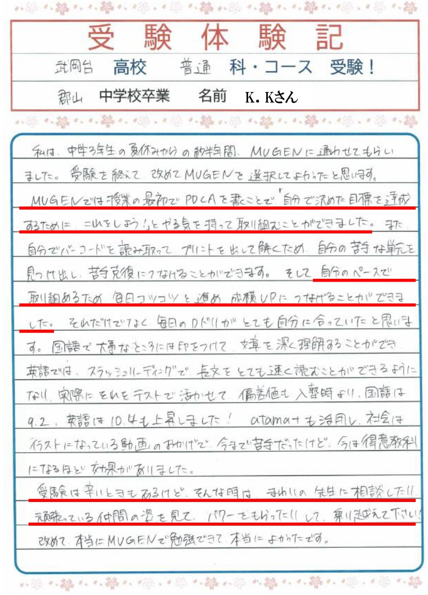 受験体験記
武岡台 高校 普通 科・コース 受験！
郡山 中学校卒業 名前 K.Kさん
私は、中学3年生の夏休みからの約半年間、MUGENに通わせてもらい
ました。受験を終えて改めてMUGENを選択してよかったと思います。
MUGENでは授業の最初でPDCAを書くことで「自分で決めた目標を達成
するために これをしよう!」とやる気を持って取り組むことができました。また
自分でバーコードを読み取って プリントを出して解くため 自分の苦手な単元を
見つけ出し、苦手克服につなげることができます。そして 自分のペースで
取り組めるため 毎日コツコツと進め 成績UPにつなげることができま
した。それだけでなく 毎日のDドリがとても自分に合っていたと思いま
す。国語で大事なところには印をつけて 文章を深く理解することができ
英語では、スラッシュリーディングで 長文をとても速く読むことができるように
なり、実際にそれをテストで活かせて 偏差値も入塾時より、国語は
9.2、英語は10.4も上昇しました! atama+も活用し、社会は
イラストになっている動画のおかげで 今まで苦手だったけど、今は得意教科
になるほど効果がありました。
受験は辛いときもあるけど、そんな時は まわりの先生に相談したり
頑張っている仲間の姿を見て、パワーをもらったりして、乗り越えて下さい!
改めて、本当にMUGENで勉強できて本当によかったです。